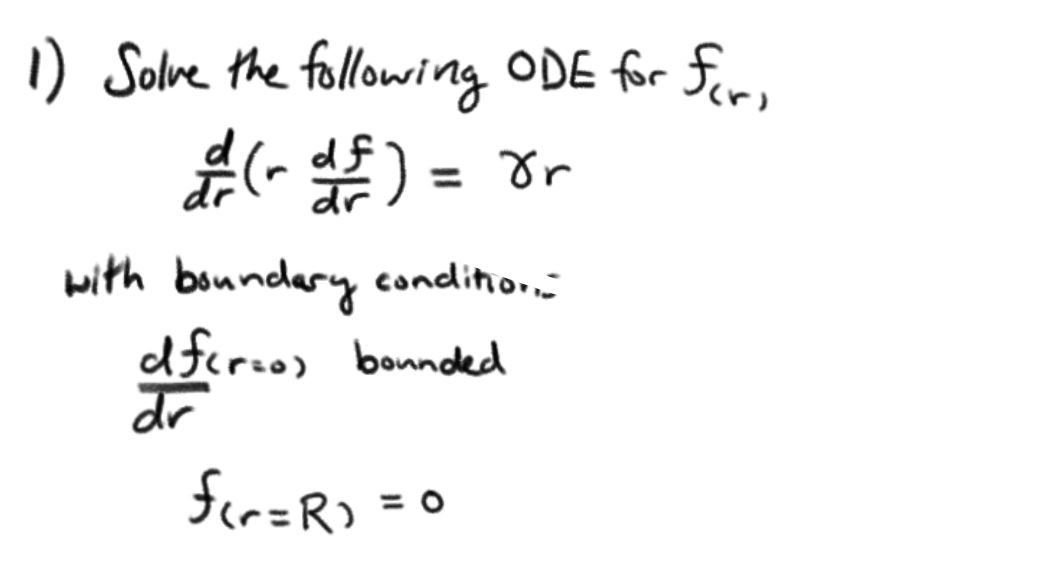 1) Solve the following ODE for f(r)
d/dr (r df/dr) = γr
with boundary conditions
df(r=0)/dr bounded
f(r=R) = 0